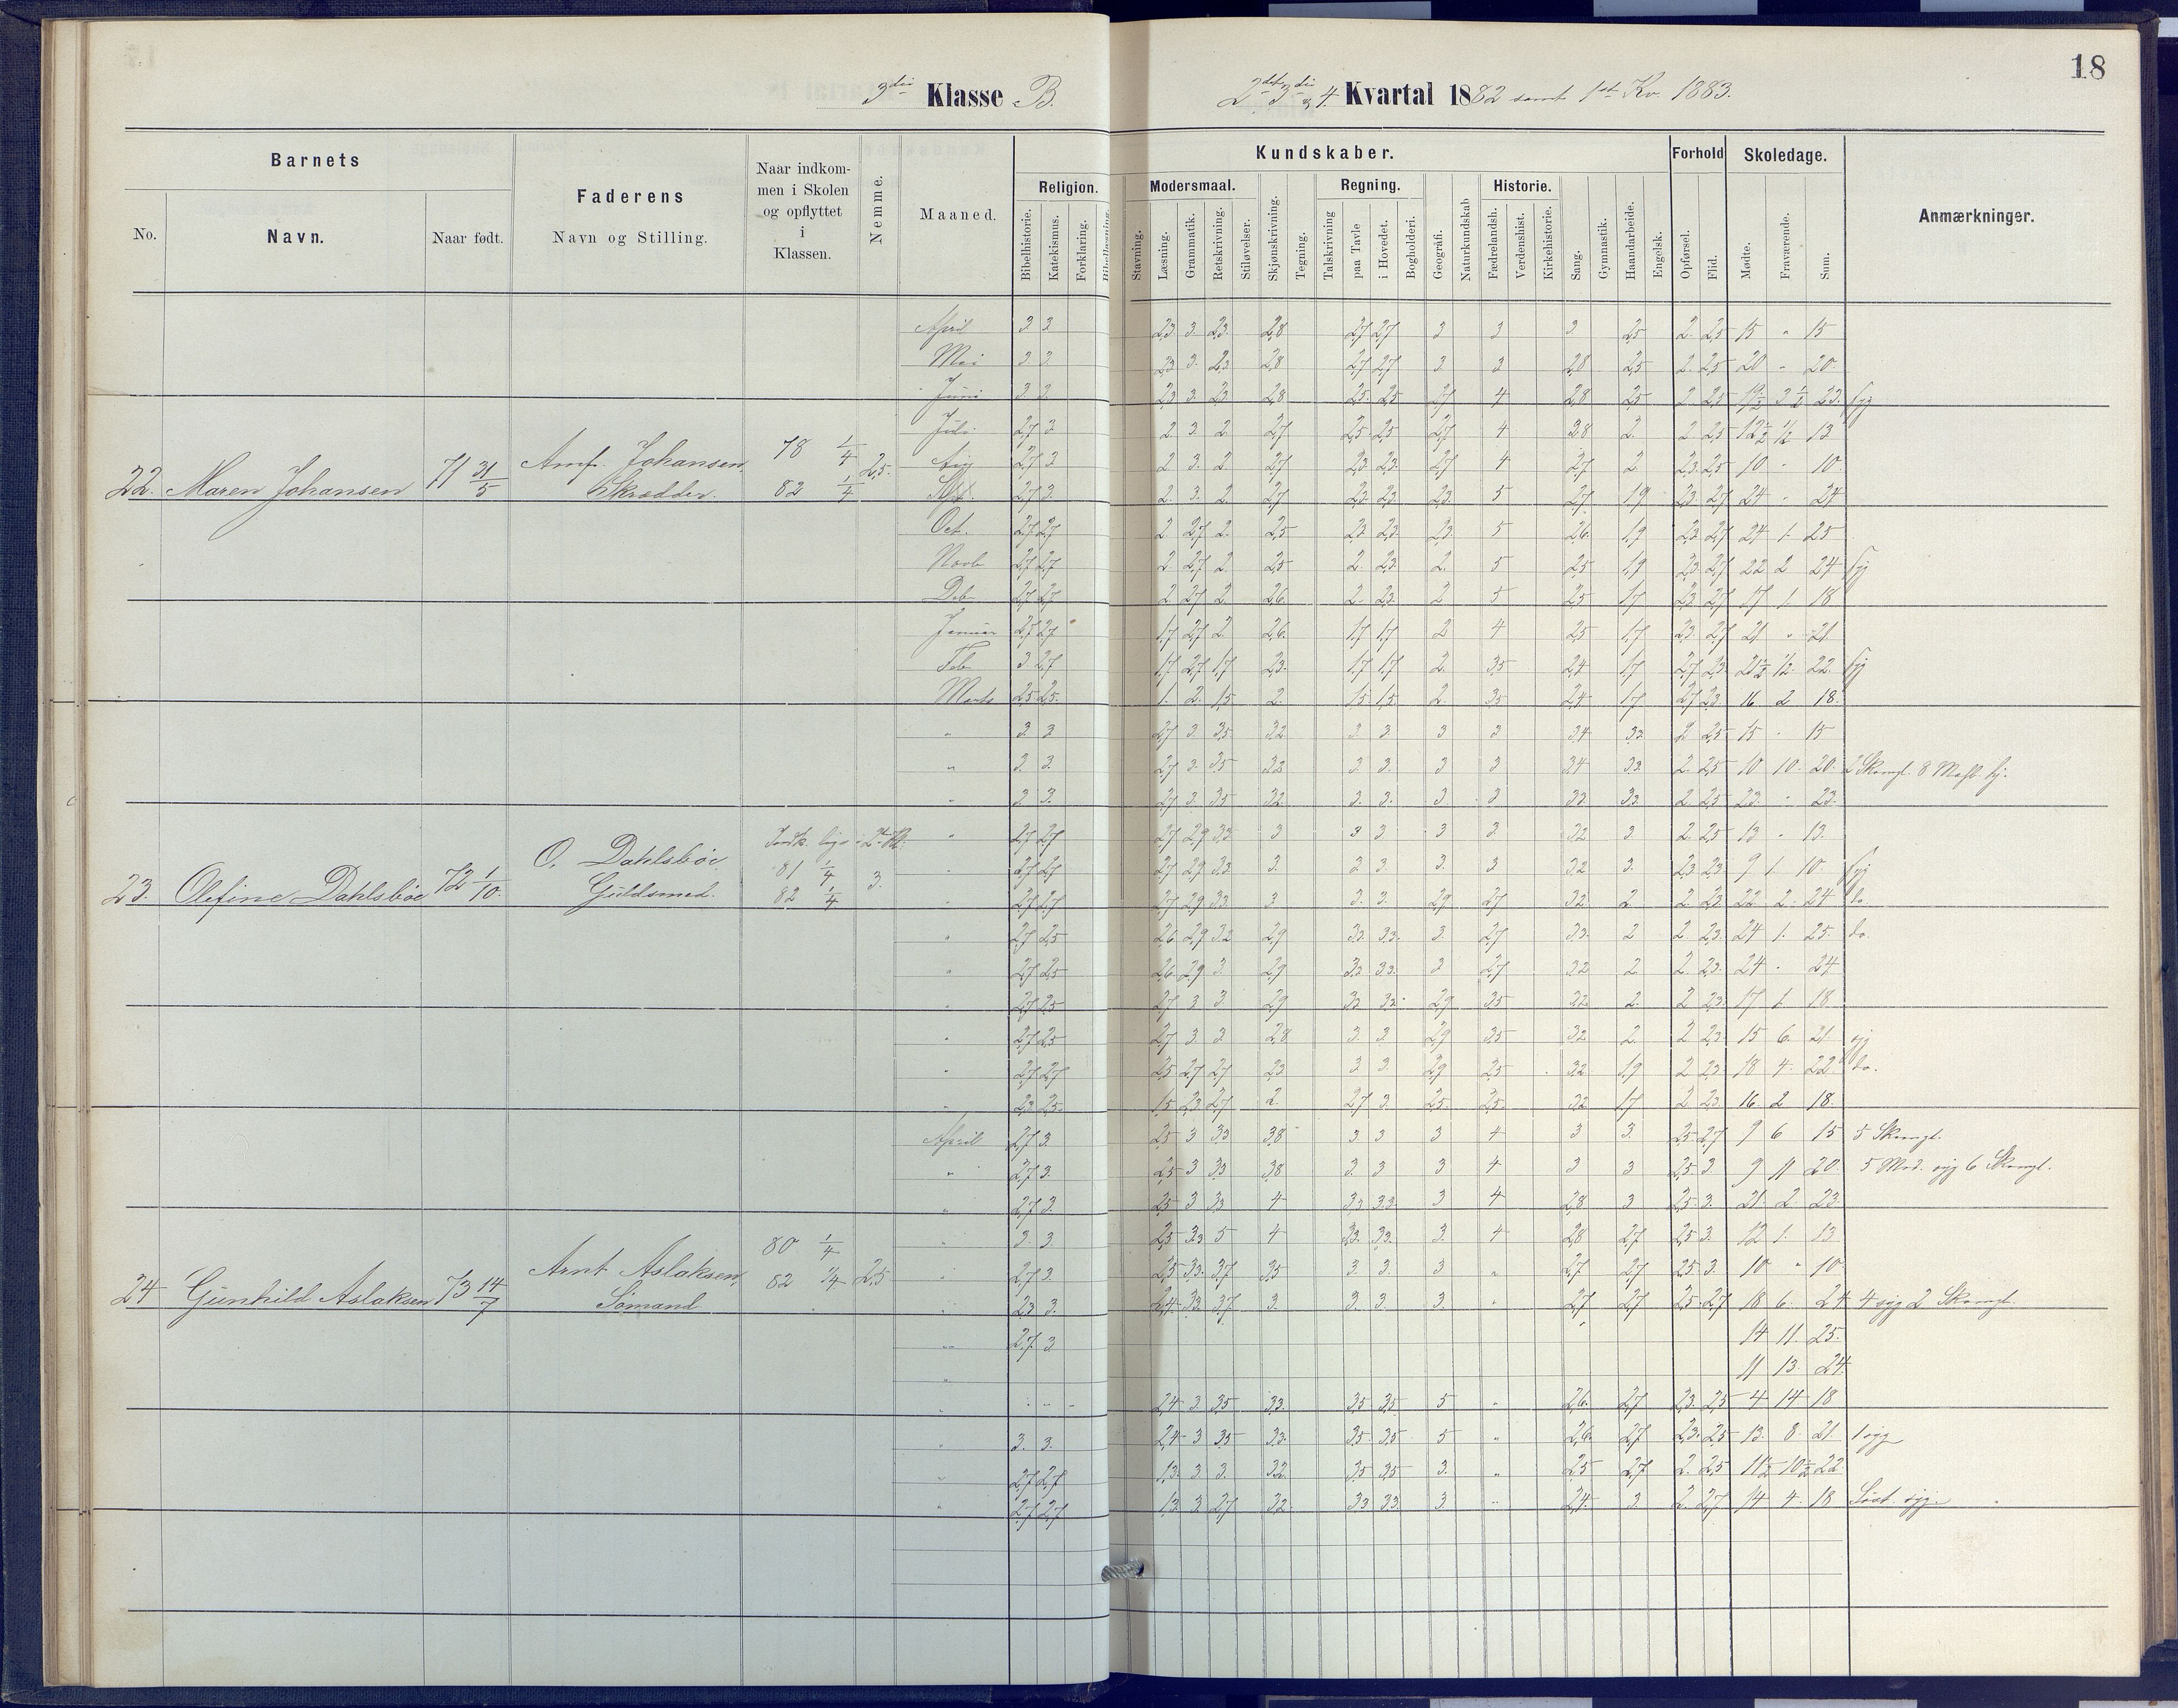 18
3die Klasse B.
2det 3die og 4. Kvartal 1882 samt 1ste Kv. 1883.
Barnets
No.
Navn.
Naar født.
Faderens
Navn og Stilling.
Naar indkom-
men i Skolen
og opflyttet
i
Klassen.
Nemme.
Maaned.
Kundskaber.
Religion.
Bibelhistorie.
Katekismus.
Forklaring.
Bibellæsning.
Modersmaal.
Stavning.
Læsning.
Grammatik.
Retskrivning.
Stiløvelser.
Skjønskrivning.
Tegning.
Regning.
Talskrivning
paa Tavle
i Hovedet.
Bogholderi.
Geografi.
Naturkundskab
Historie.
Fædrelandsh.
Verdenshist.
Kirkehistorie.
Sang.
Gymnastik.
Haandarbeide.
Engelsk.
Forhold
Opførsel.
Flid.
Skoledage.
Mødte.
Fraværende.
Sum.
Anmærkninger.
22. Maren Johansen 71 31/5
Skrædder.
78 1/4
82 1/4
2,5.
April 3 3 2,3 3 2,3. 2,8 2,7 2,7 3 3 3 2,5 2. 2,5 15 " 15
Mai 3. 3. 2,3 3. 2,3 2,8 2,7 2,7 3 3 2,8 2,5 2. 2,5 20 " 20.
Juni 3 3. 2,3 3. 2,3 2,8 2,5. 2,5 2,7 4 2,8 2,5 2 2,5 19 1/2 3 1/2 23. syg
Juli 2,7 3 2. 3. 2. 2,7 2,5 2,5 2,7 4 2,8 2. 2 2,5 12 1/2 1/2 13
Aug 2,7 3 2 3. 2. 2,7 2,3. 2,3. 2,7 4 2,7 2 2,3. 2,5 10 " 10.
Spt. 2,7 3. 2. 3. 2 2,7 2,3. 2,3. 2,3. 5 2,7 1,9 2,3. 2,7 24 " 24
Oct. 2,7 2,7 2 2,7 2. 2,5 2,3 2,3. 2,3. 5 2,6. 1,9 2,3 2,7 24 1. 25
Novb 2,7 2,7 2. 2,7 2 2,5 2. 2,3. 2. 5 2,5 1,9 2,3. 2,7 22 2 24 syg
Deb 2,7 2,7 2 2,7 2. 2,6. 2. 2,3. 2 5 2,5 1,7 2,3 2,7 17 1. 18
Januar 2,7 2,7 1,7 2,7 2. 2,6. 1,7 1,7 2 4 2,5 1,7 2,3. 2,7 21 " 21
Feb 3. 2,7 1,7 2,7 1,7 2,3. 1,7 1,7 2. 3,5 2,4 1,7 2,7 2,3. 21 1/2 1/2. 22. syg
Marts 2,5 2,5. 1. 2. 1,5 2. 1,5 1,5. 2. 3,5 2,4 1,7 2,7 2,3. 16 2 18.
23. Olefine Dahlsbøe 72 1/10.
O. Dahlsbøe
Guldsmed.
81 1/4
82 1/4
3.
" 3 3 2,7 3. 3,5 3,2 3 3. 3 3 3,4 3,3 2 2,5 15 " 15
" 3. 3. 2,7 3. 3,5 3,2 3. 3. 3 3 3,4 3,3. 2. 2,5 10 10. 20.
" 3 3. 2,7 3. 3,5 3,2. 3. 3. 3. 3 3,3. 3,3. 2. 2,5 23. " 23.
" 2,7 2,7 2,7 2,9 3,3. 3 3 3. 3 3 3,2 3. 2. 2,5 13 " 13.
" 2,7 2,7 2,7 2,9 3,3. 3. 3 3. 3. 3 3,2 3. 2,3 2,3. 9 1 10. syg
" 2,7 2,7 2,7 2,9 3,3. 3 3. 3. 2,9 2,7 3,2 2. 2. 2,3. 22 2. 24 do
" 2,7 2,5 2,6 2,9 3,2 2,9 3,3. 3,3. 3. 2,7 3,3. 2 2 2,3. 24 1. 25. do.
" 2,7 2,5 2,6 2,9 3. 2,9 3,3 3,3. 3 2,7 3,2 2. 2. 2,3. 24 " 24
" 2,7 2,5 2,7 3 3 2,9 3,2 3,2 2,9 3,5 3,2. 2. 2 2,3. 17 1. 18.
" 2,7 2,5 2,7 3 3 2,8 3. 3 2,9 3,5 3,2 2. 2 2,3. 15 6. 21. syg
" 2,7 2,7 2,5 2,7 2,7 2,3 3 3. 2,9 2,5 3,2. 1,9 2 2,3. 18 4. 22. do.
" 2,3 2,5. 1,5 2,3 2,7 2. 2,7 3. 2,5. 2,5. 3,2 1,7 2 2,3. 16. 2 18.
24 Gunhild Aslaksen 73 14/7
Arnt Aslaksen,
Sømand
80 1/4
82 1/4
2,5
April 2,7 3. 2,5 3 3,3 3,8 3 3 3 4 3 3. 2,5 2,7 9 6 15 5 Skomgl.
" 2,7 3. 2,5 3 3,3 3,8 3. 3 3 4 3 3 2,5 3. 9 11 20. 5 Mod. syg 6 Skomgl.
" 2,7 3. 2,5 3 3,3 4 3,3 3,3. 3 4 2,8 3 2,5. 3. 21. 2 23.
" 3. 3. 2,5 3,3 5 4 3,3. 3,3. 3. 4 2,8 2,7 2,5 3. 12 1. 13.
" 2,7 3. 2,5 3,3. 3,7 3,5 3. 3. 3 " 2,7 2,7 2,5 3. 10 " 10.
" 2,3 3. 2,4 3,3. 3,7. 3. 3. 3. 3. " 2,7 2,7 2,5 2,7 18 6. 24 4 syg 2 Skomgl.
" 2,7 3 14 11. 25.
" 11 13. 24.
" 2,4 3 3,5 3,3. 3,5 3,5 5 " 2,6. 2,7 2,3. 2,5 4 14 18
" 3. 3. 2,4 3 3,5 3,3. 3,5. 3,5 5 " 2,6. 2,7 2,3. 2,5 13. 8. 21 1 syg
" 2,7 2,7 1,3. 3 3. 3,2. 3,5 3,5 3. " 2,5 2,7 2. 2,5 11 1/2 10 1/2 22
" 2,7 2,7 1,3. 3 2,7 3,2. 3,3 3,3. 3. " 2,4. 3 2. 2,7 14 4. 18